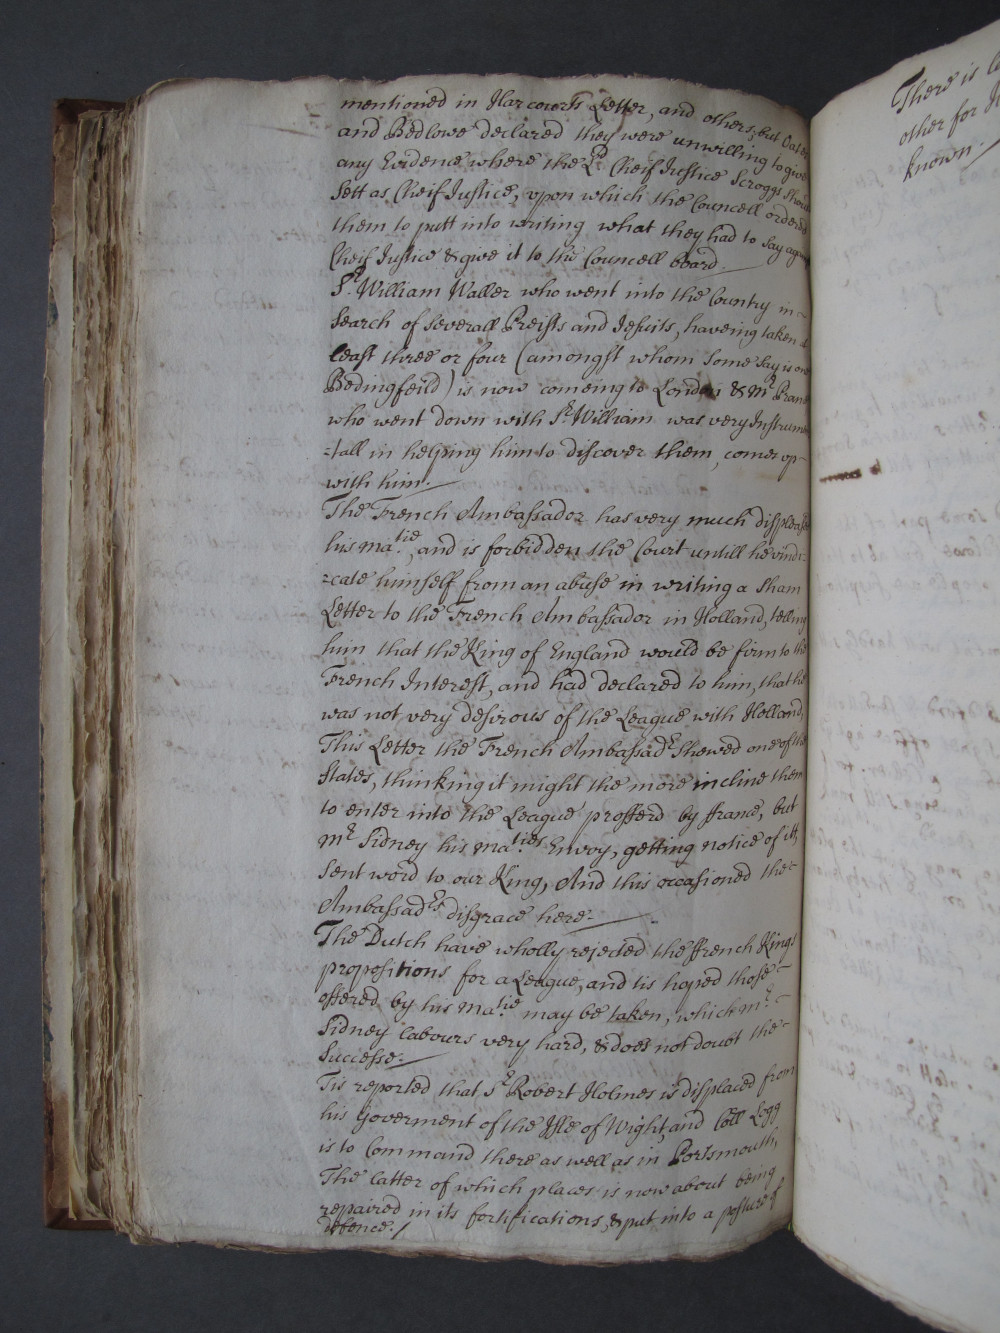 mentioned in Harcourts Letter, and others, but Oates
and Bedlowe declared they were unwilling to give
any Evidence where the Ld. Cheif Justice Scroggs should
sett as Cheif Justice, upon which the Councell ordered
them to putt into writing what they had to say against
Cheif Justice & give it to the Councell board.
Sr. William Waller who went into the Country in-
search of severall Preists and Jesuits, haveing taken at
least three or four (amongst whom some say is one
Bedingfeild) is now comeing to London & Mr. Prance
who went down with Sr. William was very Instrumen
-tall in helping him to discover them, comes up-
with him.
The French Ambassador has very much displeased
his Matie., and is forbidden the Court untill he vindi-
-cate himself from an abuse in writing a sham
Letter to the French Ambassador in Holland, telling
him that the King of England would be firm to the
French Interest, and had declared to him, that he
was not very desirous of the League with Holland,
This Letter the French Ambassadr. shewed one of the
States, thinking it might the more incline them
to enter into the League profferd by ffrance, but
Mr. Sidney his Maties Envoy, getting notice of itt,
sent word to our King, And this occasioned the-
Ambassadrs. disgrace here-
The Dutch have wholly rejected the ffrench Kings
propositions for a League, and tis hoped those-
offered by his Matie. may be taken, which Mr.-
Sidney labours very hard, & does not doubt the-
Successe.
Tis reported that Sr. Robert Holmes is displaced from
his Goverment of the Isle of Wight, and Coll Legg
is to Command there as well as in Portsmouth,
The latter of which places is now about being
repaired in its fortifications, & put into a posture of
defence./
There is
other for
known.